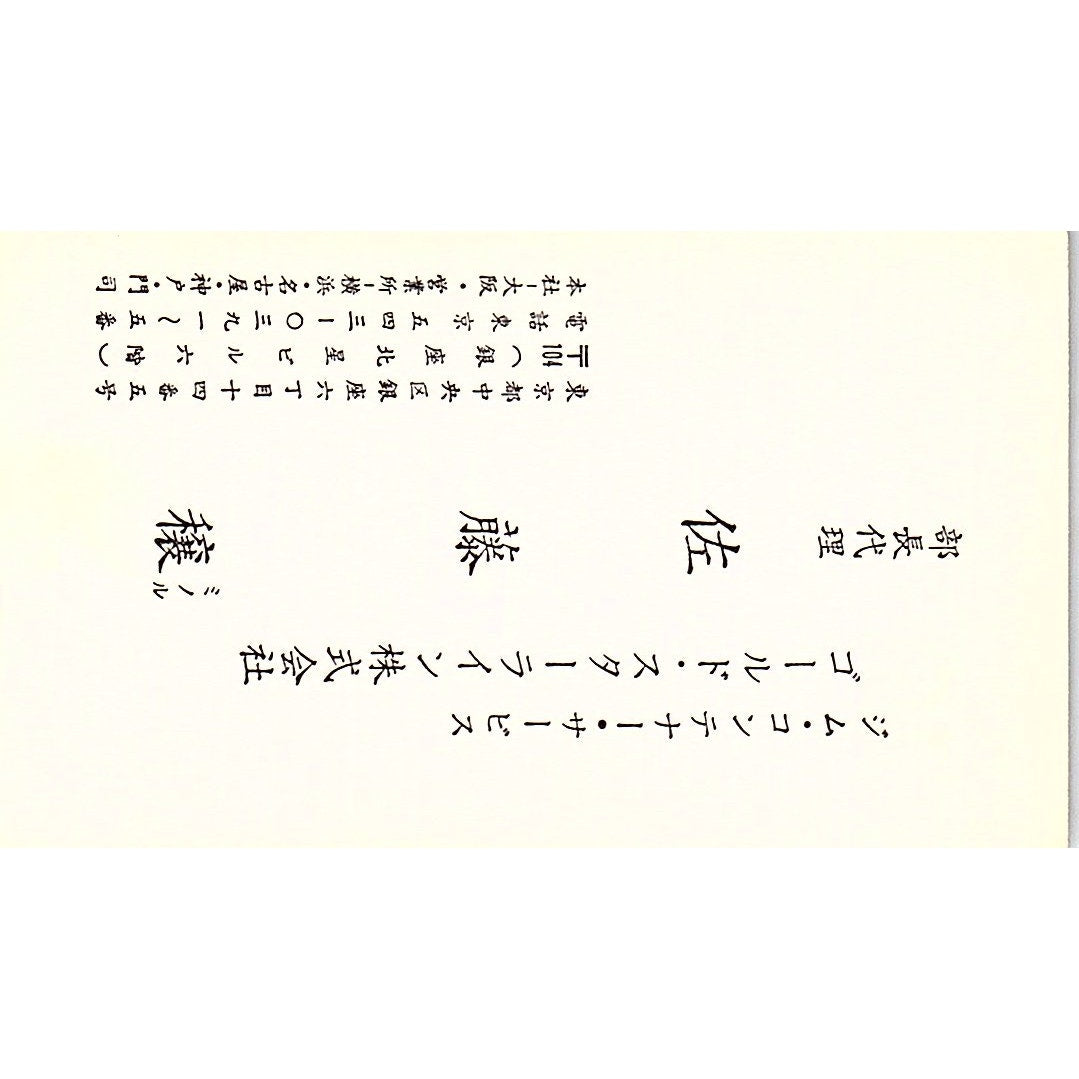 ジム・コンテナー・サービス
ゴールド・スターライン株式会社
部長代理
佐藤穣
ミノル
東京都中央区銀座六丁目十四番五号
〒104(銀座北星ビル六階)
電話東京五四三ー〇三九一〜五番
本社ー大阪・営業所ー横浜・名古屋・神戸・門司